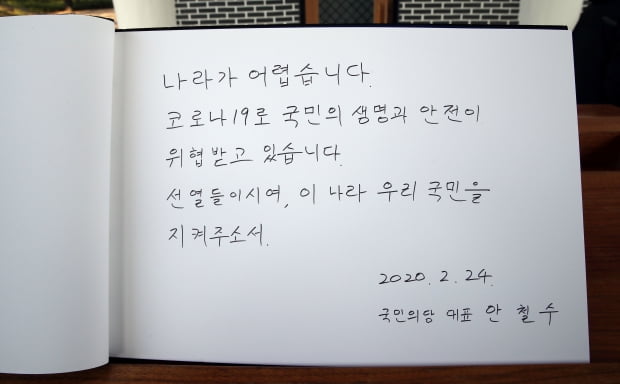 나라가 어렵습니다.
코로나19로 국민의 생명과 안전이
위협받고 있습니다.
선열들이시여, 이 나라 우리 국민을
지켜주소서.
2020. 2. 24.
국민의당 대표 안 철 수